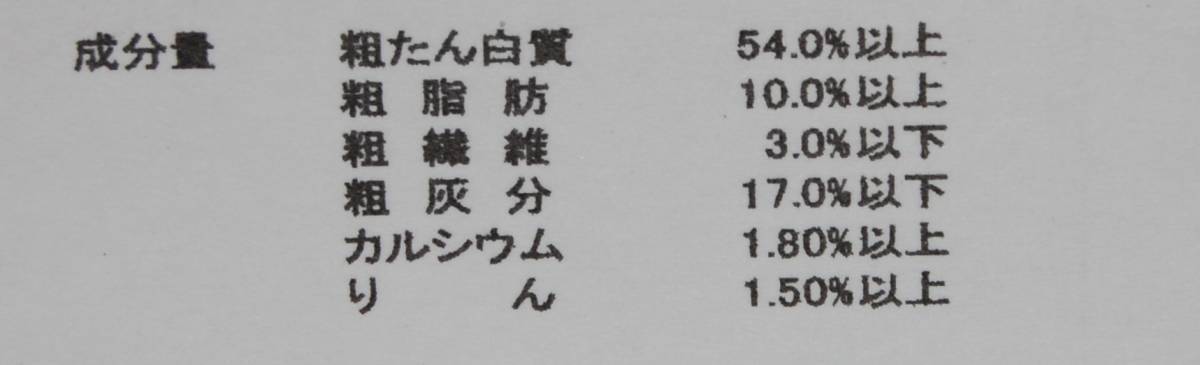 成分量 粗たん白質 54.0%以上
粗脂肪 10.0%以上
粗繊維 3.0%以下
粗灰分 17.0%以下
カルシウム 1.80%以上
りん 1.50%以上